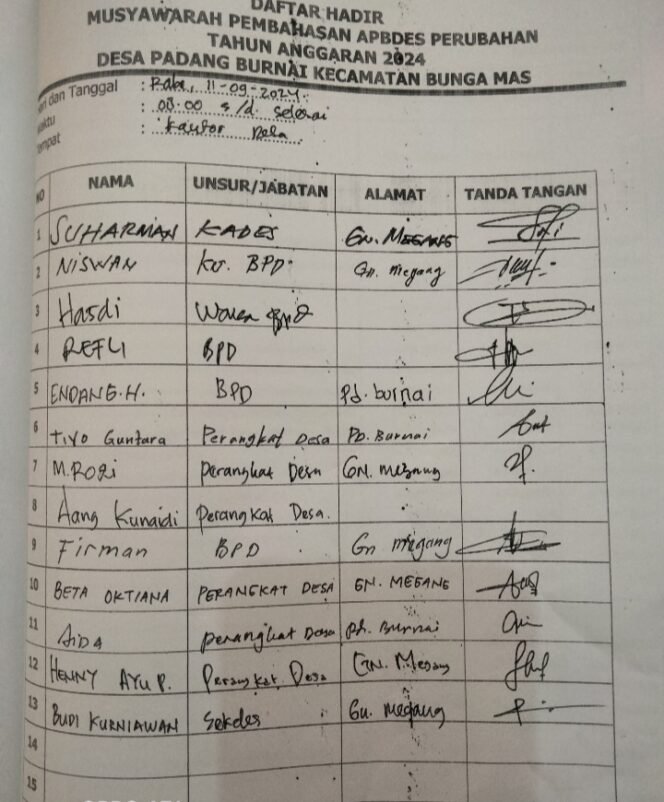 DAFTAR HADIR
MUSYAWARAH PEMBAHASAN APBDES PERUBAHAN
TAHUN ANGGARAN 2024
DESA PADANG BURNAI KECAMATAN BUNGA MAS
dan Tanggal : Rabu, 11-09-2024.
: 08:00 s/d. selesai
: Kantor Desa
NO NAMA UNSUR/JABATAN ALAMAT TANDA TANGAN
1 SUHARMAN KADES GN. MEGANG
2 NISWAN KT. BPD Gn. megang
3 Hasdi Waka BPD
4 REFLI BPD
5 ENDANG.H. BPD Pd. burnai
6 Tiyo Guntara Perangkat Desa Pd. Burnai
7 M.Rozi perangkat Desa GN. megang
8 Aang Kunaidi perangkat Desa.
9 Firman BPD Gn megang
10 BETA OKTIANA PERANGKAT DESA GN. MEGANG
11 AIDA perangkat Desa pd. Burnai
12 HENNY AYU P. Perangkat Desa GN. Megang
13 BUDI KURNIAWAN Sekdes Gn. megang
14
15